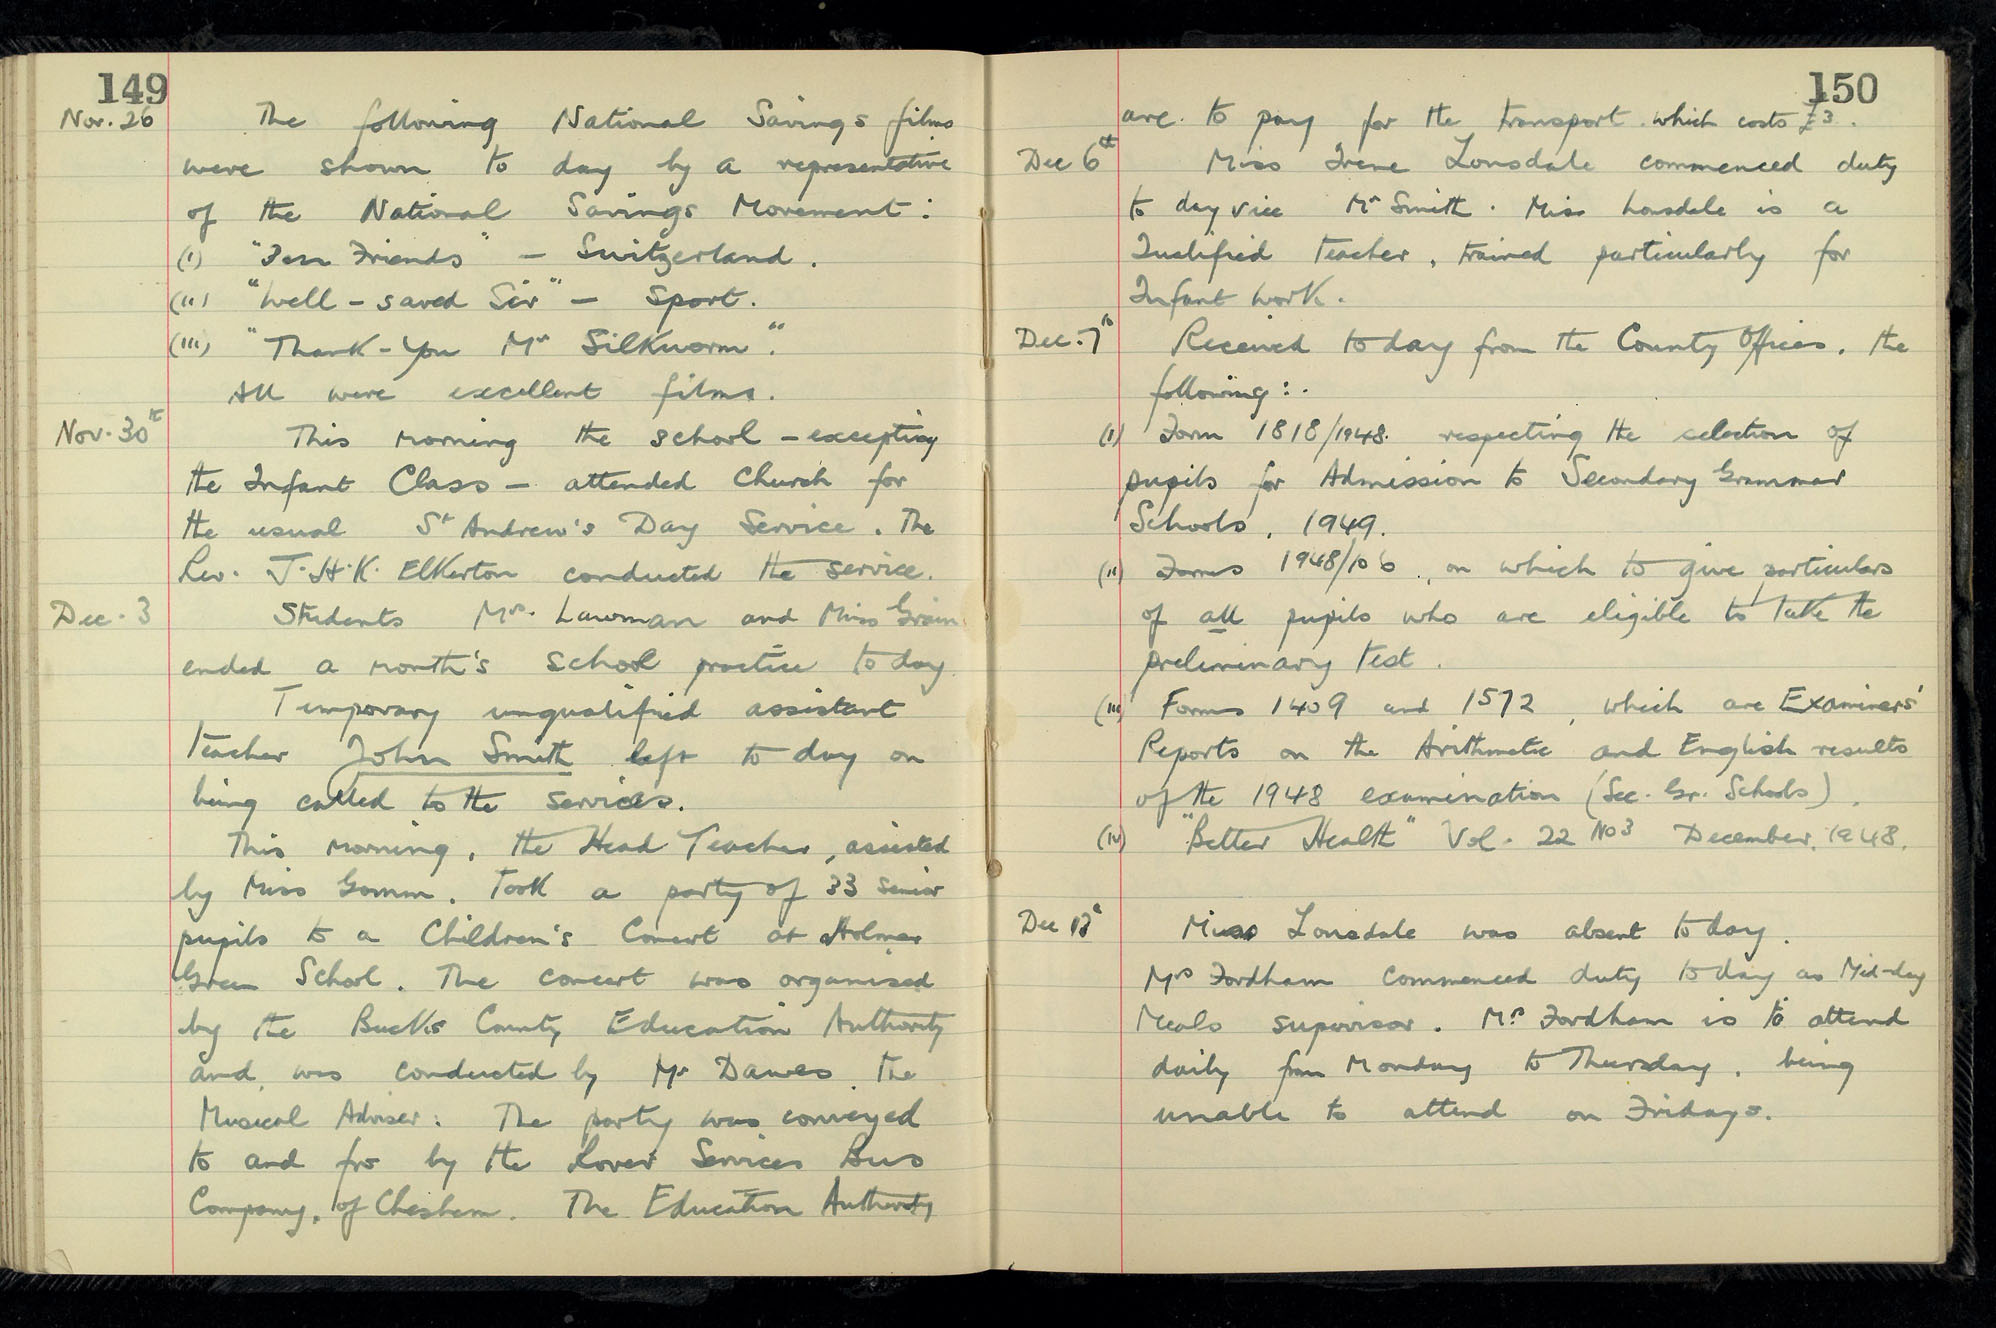 149
Nov. 26 The following National Savings films
were shown to day by a representative
of the National Savings Movement :
(I) " Friends" – Switzerland.
(II) "Well - saved Sir" – Sport.
(III) "Thank - You Mr Silkworm".
All were excellent films.
Nov. 30th This morning the school – excepting
the Infant Class – attended Church for
the usual St Andrew's Day Service. The
Rev. J.H.K. Elkerton conducted the service.
Dec. 3 Students Mrs. Lawman and Miss
ended a month's school practice to day.
Temporary unqualified assistant
teacher John Smith left to day on
being called to the services.
This morning, the Head Teacher, assisted
by Miss Gomm, took a party of 33 senior
pupils to a Children's Concert at Holmer
Green School. The concert was organised
by the Bucks County Education Authority
and was conducted by Mr Dawes the
Musical Adviser. The party was conveyed
to and fro by the Rover Services Bus
Company, of Chesham. The Education Authority
150
are to pay for the transport which costs £3.
Dec 6th Miss Irene Lonsdale commenced duty
to day vice Mr Smith. Miss Lonsdale is a
Qualified Teacher, trained particularly for
Infant work.
Dec. 7th Received to day from the County Offices, the
following :-
(I) Form 1818/1948 respecting the selection of
pupils for Admission to Secondary Grammar
Schools, 1949.
(II) Forms 1948/106, on which to give particulars
of all pupils who are eligible to take the
preliminary test.
(III) Forms 1409 and 1572, which are Examiners'
Reports on the Arithmetic and English results
of the 1948 examination (Sec. Gr. Schools).
(IV) "Better Health" Vol. 22 No 3 December, 1948.
Dec Miss Lonsdale was absent to day.
Mrs Fordham commenced duty to day as Mid-day
Meals supervisor. Mrs Fordham is to attend
daily from Monday to Thursday, being
unable to attend on Fridays.